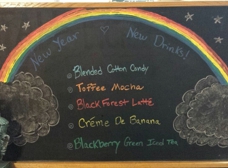 New Year ♡ New Drinks!
Blended Cotton Candy
Toffee Mocha
Black Forest Latté
Créme De Banana
Blackberry Green Iced Tea